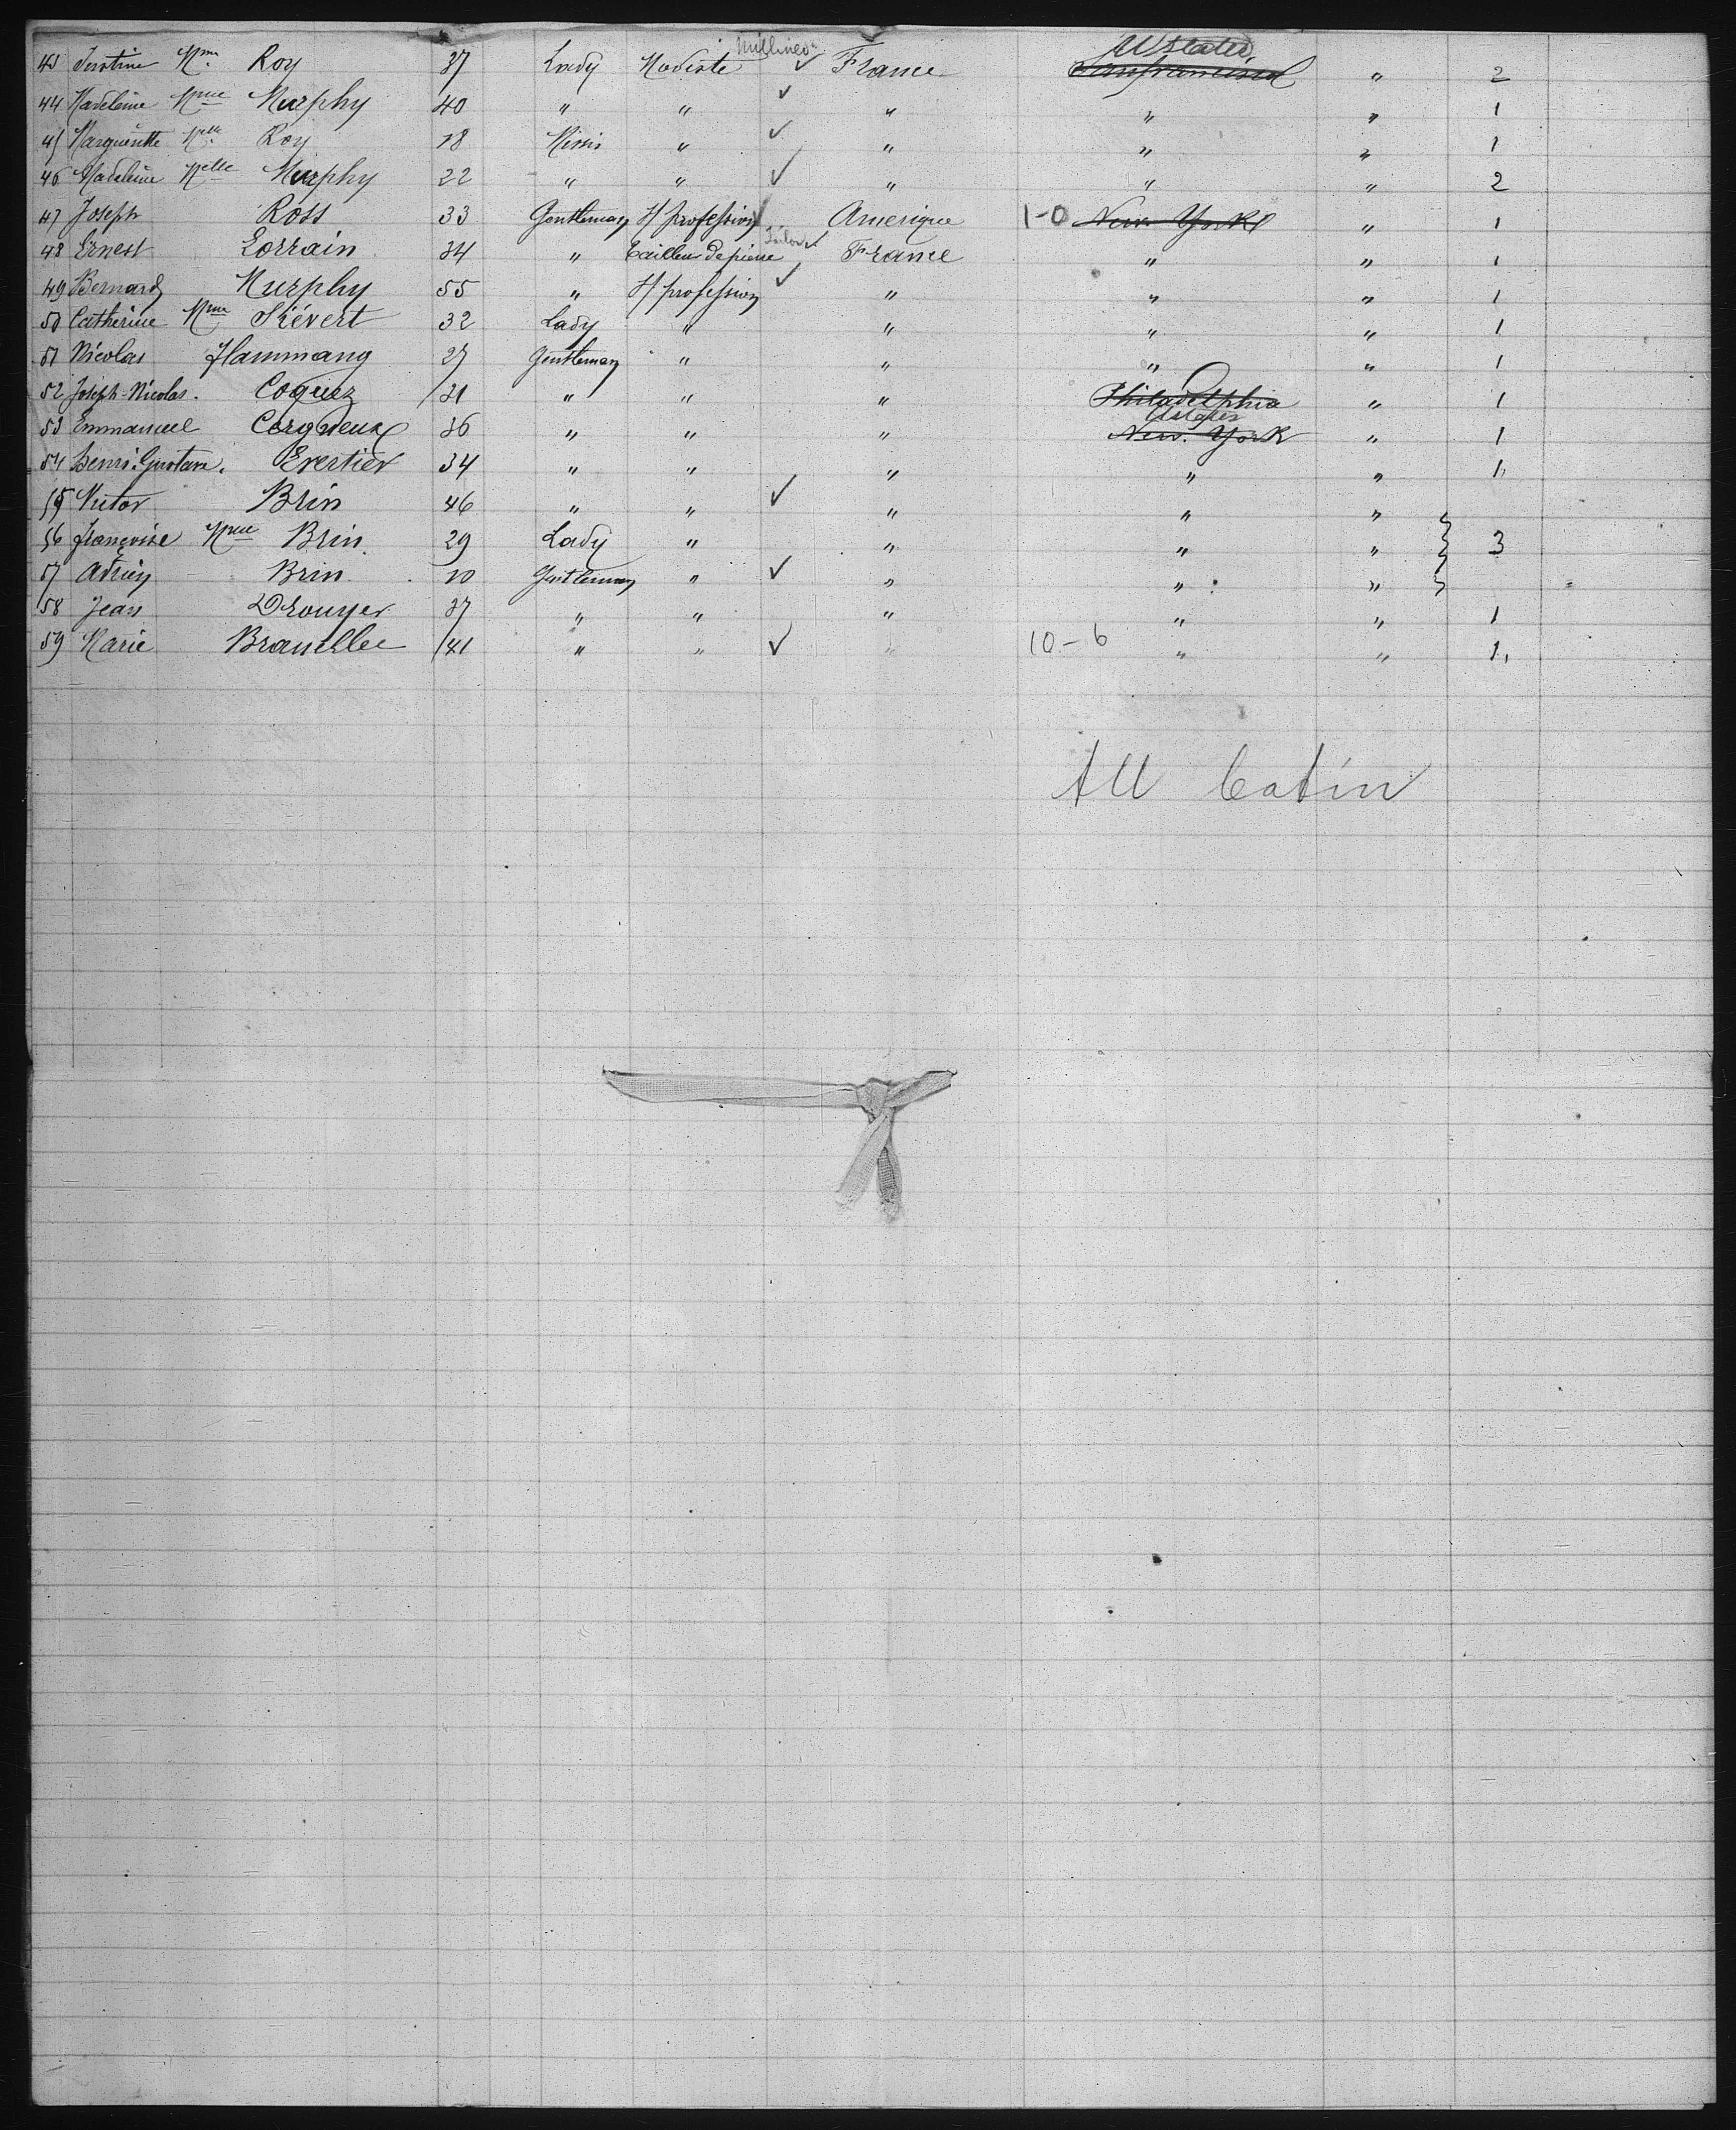 Milliner
U States
43 Justine Mme Roy 37 Lady Modiste ✓ France Sanfrancisco " 2
44 Madeleine Mme Murphy 40 " " ✓ " " " 1
45 Marguerite Melle Roy 18 Miss " ✓ " " " 1
46 Madeleine Melle Murphy 22 " " ✓ " " " 2
47 Joseph Ross 33 Gentleman S/ profession Amerique 1-0 New York " 1
48 Ernest Lorrain 34 " Tailleur de pierre Tailor ✓ France " " 1
49 Bernard Murphy 55 " S/ profession ✓ " " " 1
50 Catherine Mme Siévert 32 Lady " " " " 1
51 Nicolas Hammang 27 Gentleman " " " " 1
52 Joseph-Nicolas. Coquez 31 " " " Philadelphia " 1
U States
53 Emmanuel 36 " " " New. York " 1
54 Henri-Gustave. Evertier 34 " " " " " 1
55 Victor Brin 46 " " ✓ " " "
56 Françoise Mme Brin 29 Lady " " " " } 3
57 Adrien Brin 10 Gentleman " ✓ " " "
58 Jean Drouyer 37 " " " " " 1
59 Marie 41 " " ✓ " 10-6 " " 1
All Cabin